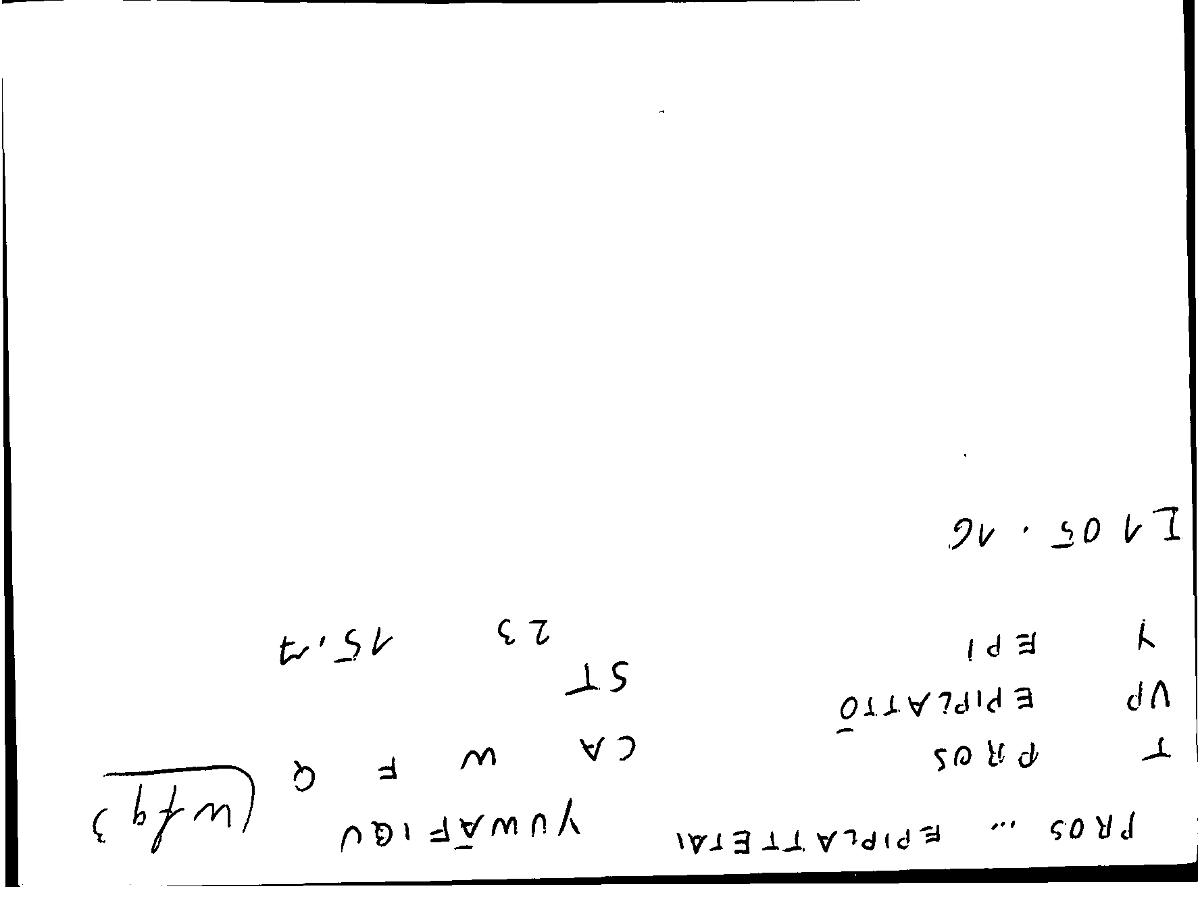 PROS ... EPIPLATTETAI YUWĀFIQU (wfq 3
T PROS CA W F Q
VP EPIPLATTŌ ST
Y EPI 23 15.7
I1 05.16